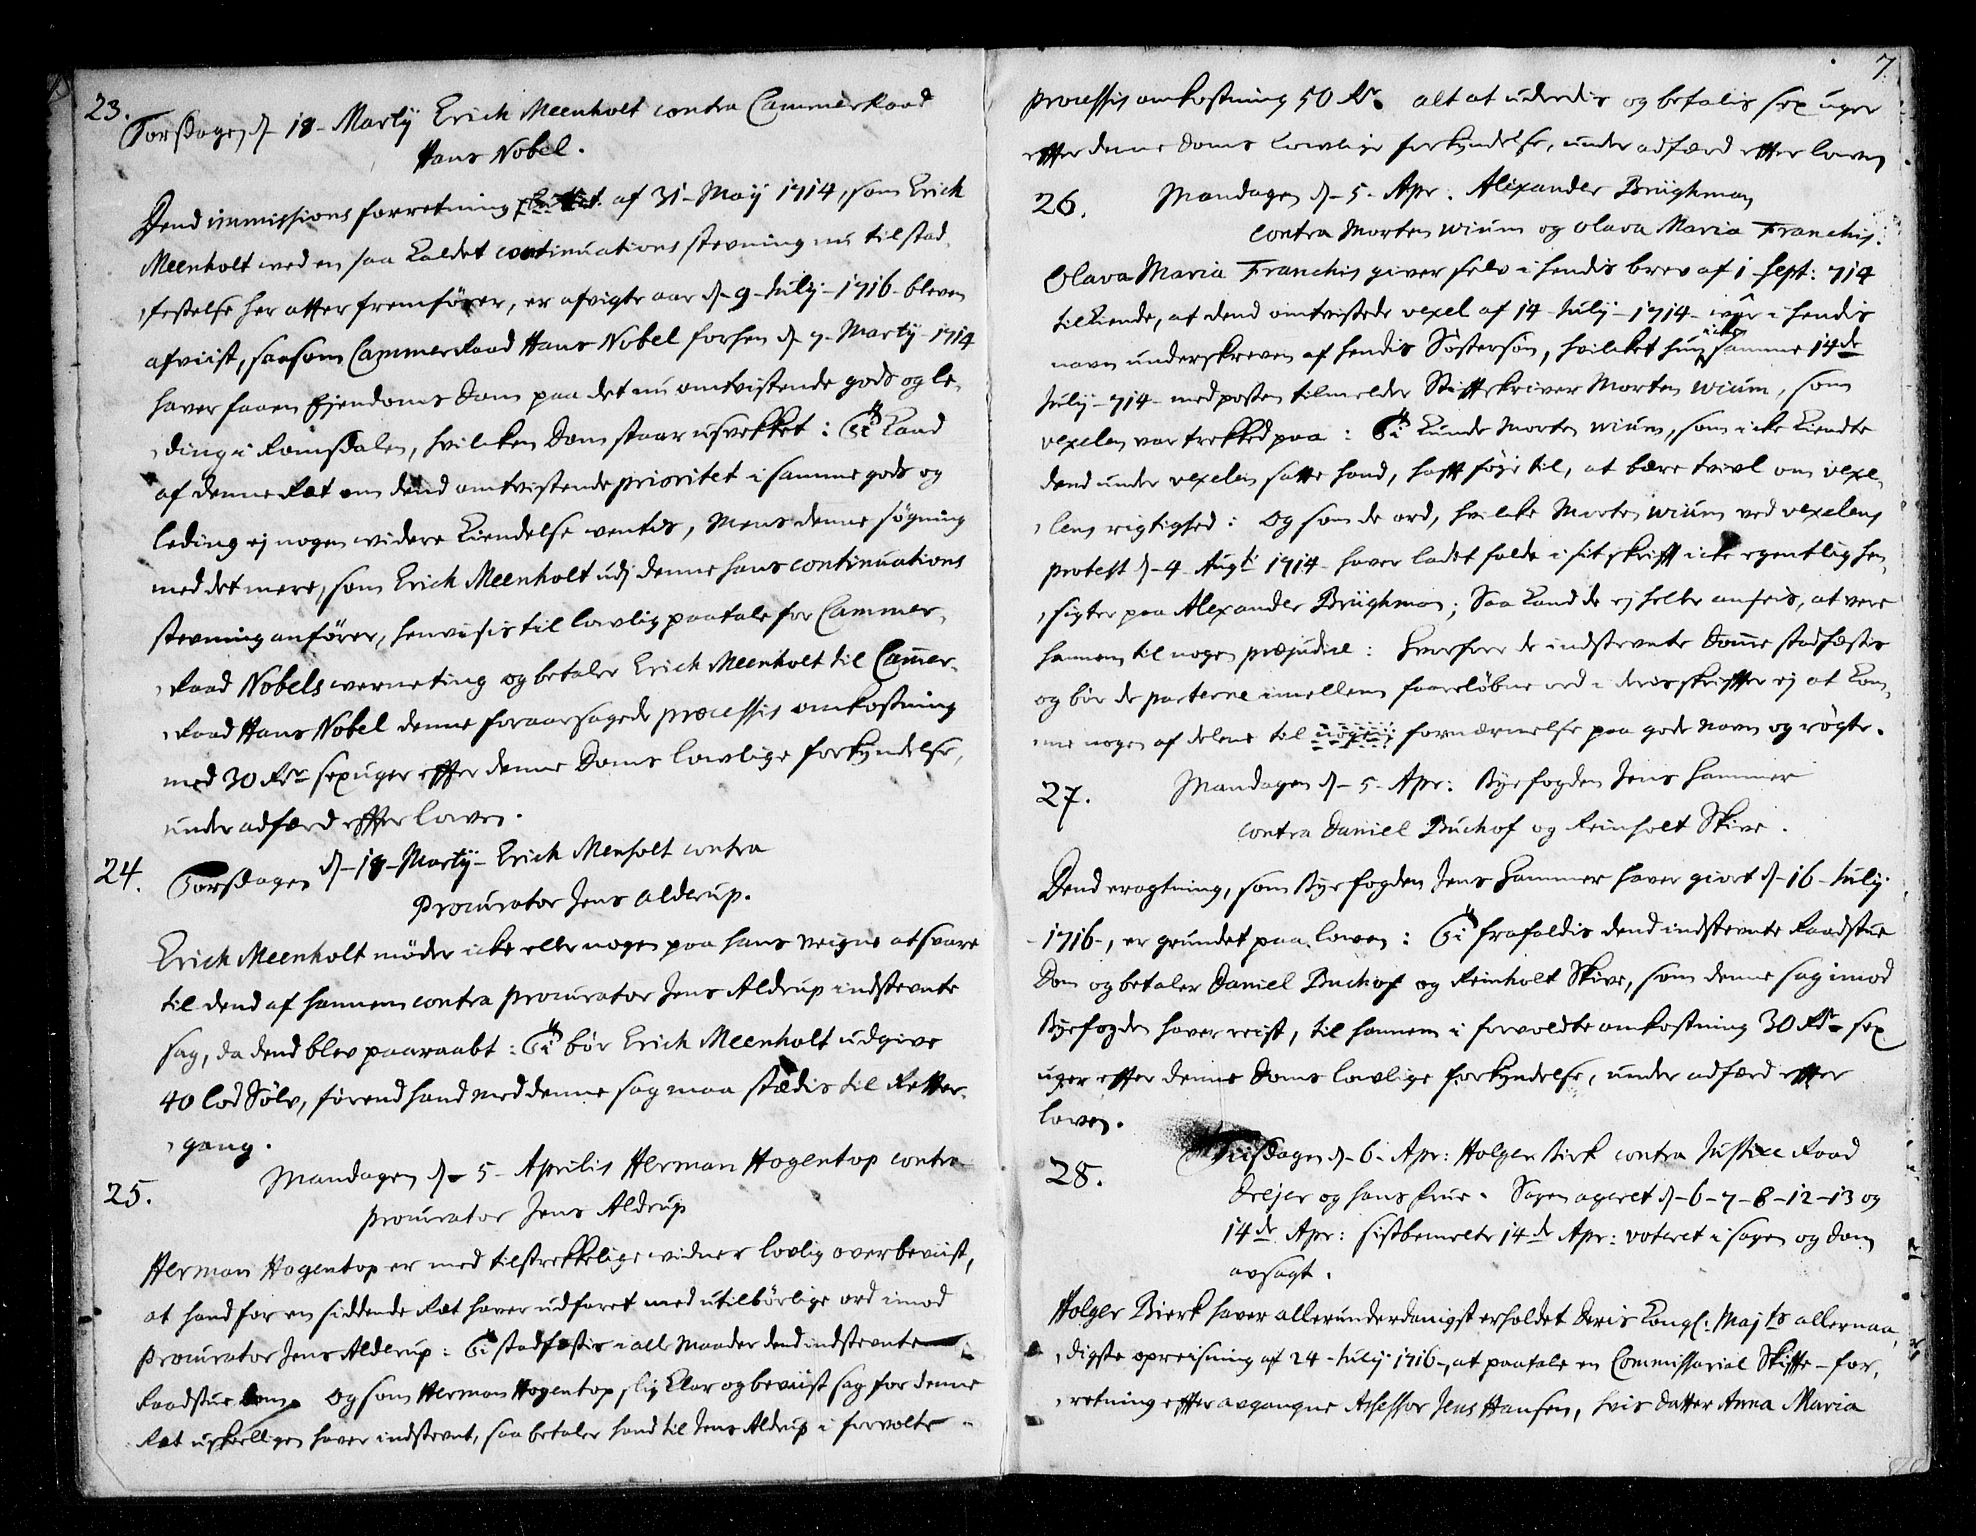 23.
Torsdagen d. 18 Martÿ Erich Meenholt contra CammerRaad
Hans Nobel.
Dend immissions forretning af 31 Maÿ 1714, som Erich
Meenholt ved en saa kaldet continuations stevning nu til stad-
festelse her atter fremfører, er afvigte aar d. 9 Julÿ 1716 bleven
afviist, saasom CammerRaad Hans Nobel forhen d. 7 Martÿ 1714
haver faaen Ejendoms Dom paa det nu omtvistende gods og le-
ding i Romsdalen, hvilcken Dom staar usvekket: Ti kand
af denne Ræt om dend omtvistende prioritet i samme gods og
leding ej nogen widere kiendelse ventes, Mens denne søgning
med det mere, som Erich Meenholt udj denne hans continuations
stevning anfører, henvisis til lovlig paatale for Cammer-
Raad Nobels werneting og betaler Erich Meenholt til Cammer-
Raad Hans Nobel denne foraarsagede processis omkostning
med 30 Rdr sex uger effter denne Doms lovlige forkyndelse,
under adfærd effter loven.
24.
Torsdagen d. 18 Martÿ Erich Menholt contra
Procurator Jens Alderup.
Erich Meenholt møder icke eller nogen paa hans veigne at svare
til dend af hannem contra procurator Jens Aldrup indstevnte
sag, da dend blev paaraabt: Ti bør Erich Meenholt udgive
40 lod Sølv, førend hand med denne sag maa stædis til Retter-
gang.
25.
Mandagen d. 5 Aprilis Herman Hogentop contra
procurator Jens Aldrup
Herman Hogentop er med tilstrekkelige widner lovlig overbeviist,
at hand for en siddende Ræt haver udfaret med utilbørlige ord imod
Procurator Jens Alderup: Ti stadfæstis i all Maader dend indstevnte
Raadstue Dom. Og som Herman Hogentop slig klar og beviist sag for denne
Ræt uskielligen haver indstevnt, saa betaler hand til Jens Aldrup i forvolte
7
processis omkostning 50 Rdr. alt at uderedis og betalis sex uger
effter denne Doms lowlige forkyndelse, under adfærd effter loven
26.
Mandagen d. 5 Apr. Alexander Brüghman
contra Morten Wium og Olava Maria Franchis.
Olava Maria Franchis giver selv i hendis brev af 1 Sept: 714
tilkiende, at dend omtvistede vexel af 14 Julÿ 1714 i hendis
navn underskreven af hendis Søstersøn, hvilcket hun icke samme 14de
Julÿ 714 med posten tilmelder Stifftskriver Morten Wium, som
vexelen var trekked paa: Ti kunde Morten Wium, som icke kiendte
dend under vexelen satte hand, hafft føje til, at bære tvivl om vexe-
lens rigtighed: Og som de ord, hvilcke Morten Wium ved vexelens
protest d. 4 Augti 1714 haver ladet falde i sit skrifft icke egentlig hen-
sigter paa Alexander Brüghman; Saa kand de ej heller ansees, at vere
hannem til nogen præjudice: Hvorfore de indstevnte Domme stadfæstis
og bør de parterne imellem faareløbne ord i deris skriffter ej at kom-
me nogen af delene til nogen fornærmelse paa gode navn og røgte.
27.
Mandagen d. 5 Apr: Byefogden Jens Hammer
contra Daniel Buchof og Reinholt Skive.
Dend eragtning, som Byefogden Jens Hammer haver giort d. 16 Julÿ
1716, er grundet paa loven: Ti frafaldis dend indstevnte Raadstue
Dom og betaler Daniel Buchof og Reinholt Skive, som denne sag imod
Byefogden haver reist, til hannem i forvoldte omkostning 30 Rdr sex
uger effter denne Doms lovlige forkyndelse, under adfærd effter
loven.
28.
Tiisdagen d. 6 Apr: Holger Birk contra Justice Raad
Drejer og hans frue. Sagen ageret d. 6-7-8-12-13 og
14de Apr: sistbemelte 14de Apr: voteret i sagen og Dom
avsagt.
Holger Bierk haver allerunderdanigst erholdet Deris Kongl: Majts allernaa-
digste opreisning af 24 Julÿ 1716, at paatale en Commissarial Skiffte-for-
retning effter avgangne Assessor Jens Hansen, hvis datter Anna Maria